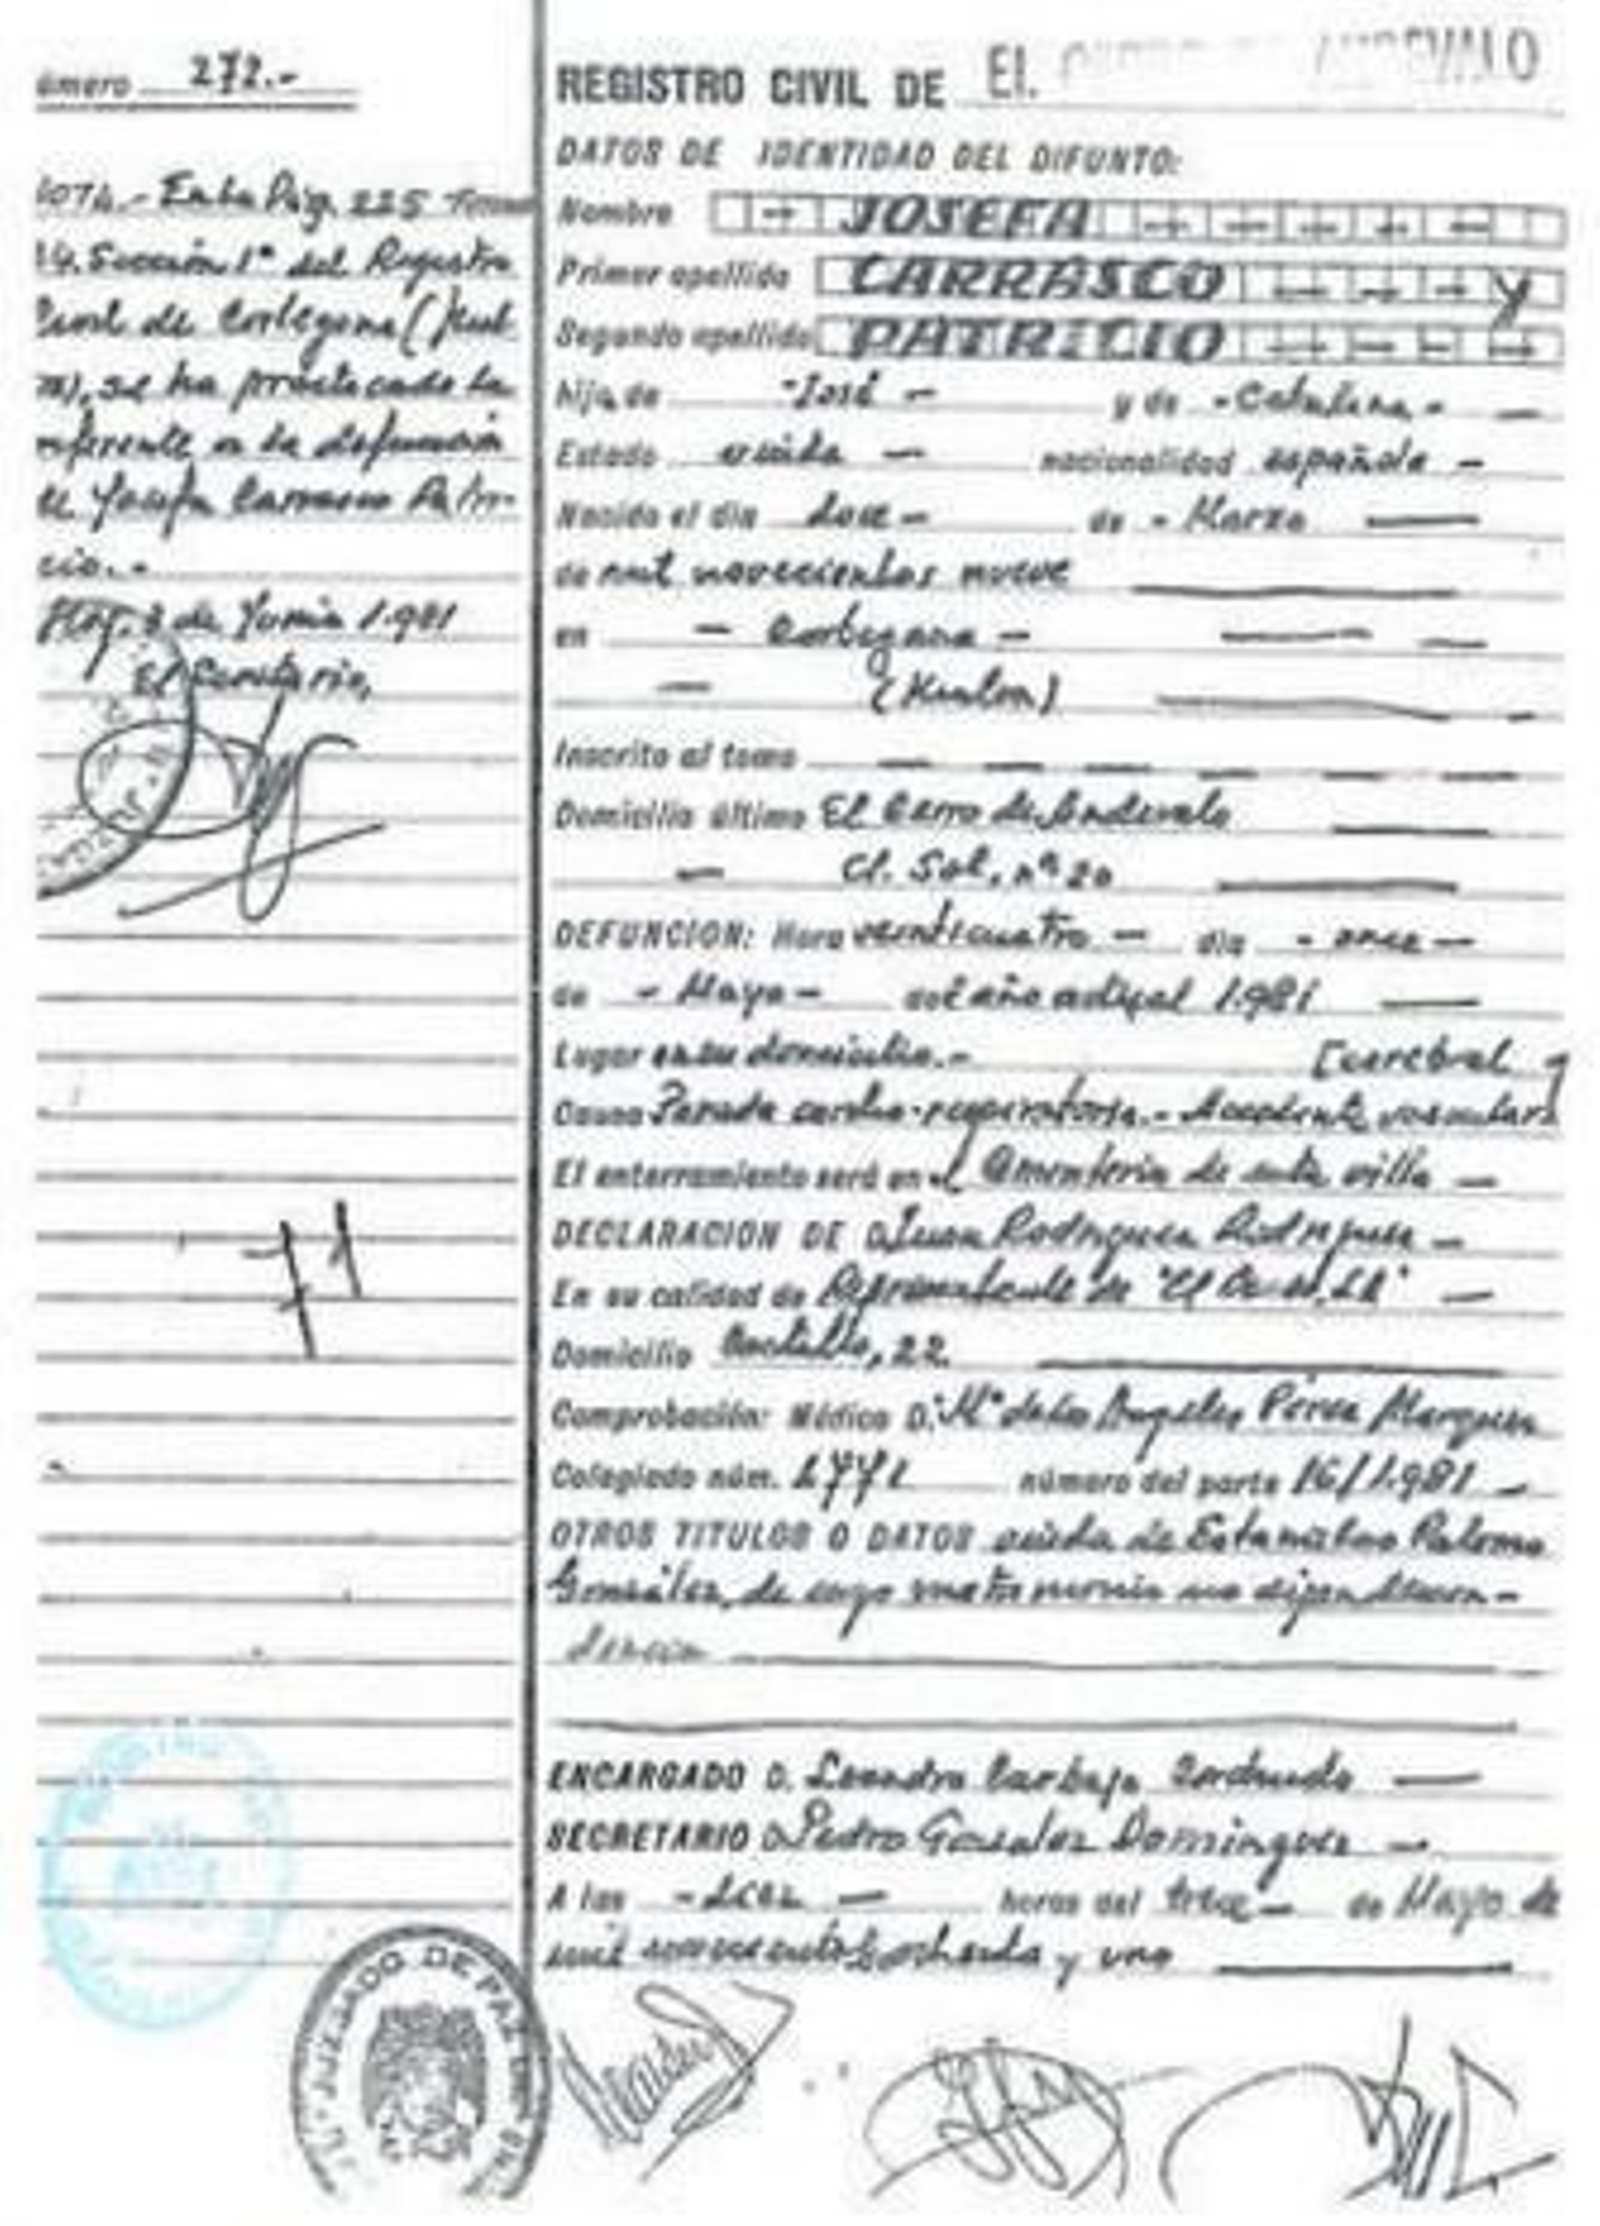 úmero 272.-
OTA.- En la Pág. 225 Tomo
14. Sección 1ª del Registro
Civil de Cortegana (Huel
va), se ha practicado la
referente a la defunción
de Josefa Carrasco Patri-
cio.-
3 de Junio 1.981
El Secretario,
71
REGISTRO CIVIL DE EL ANDEVALO
DATOS DE IDENTIDAD DEL DIFUNTO:
Nombre JOSEFA
Primer apellido CARRASCO Y
Segundo apellido PATRICIO
hija de -José- y de -Catalina-
Estado viuda - nacionalidad española -
Nacido el día doce - de - Marzo
de mil novecientos nueve
en - Cortegana -
- (Huelva)
Inscrito al tomo
Domicilio último El Cerro de Andévalo
- Cl. Sol, nº 20
DEFUNCION: Hora veinticuatro - día - once -
de - Mayo - del año actual 1.981
Lugar en su domicilio.- [cerebral
Causa Parada cardio-respiratoria.- Accidente vascular
El enterramiento será en el Cementerio de esta villa -
DECLARACION DE D. Juan Rodriguez Rodriguez -
En su calidad de Representante de "El
Domicilio Castillo, 22
Comprobación: Médico D.ª Mª de los Angeles Pérez Marquez
Colegiado núm. 1771 número del parte 16/1.981 -
OTROS TITULOS O DATOS viuda de Estanislao Palomo
González, de cuyo matrimonio no dejan descen-
dencia
ENCARGADO D. Leandro Carbajo
SECRETARIO D. Pedro Gonzalez Dominguez -
A las - diez - horas del trece - de Mayo de
mil novecientos ochenta y uno
JUZGADO DE PAZ